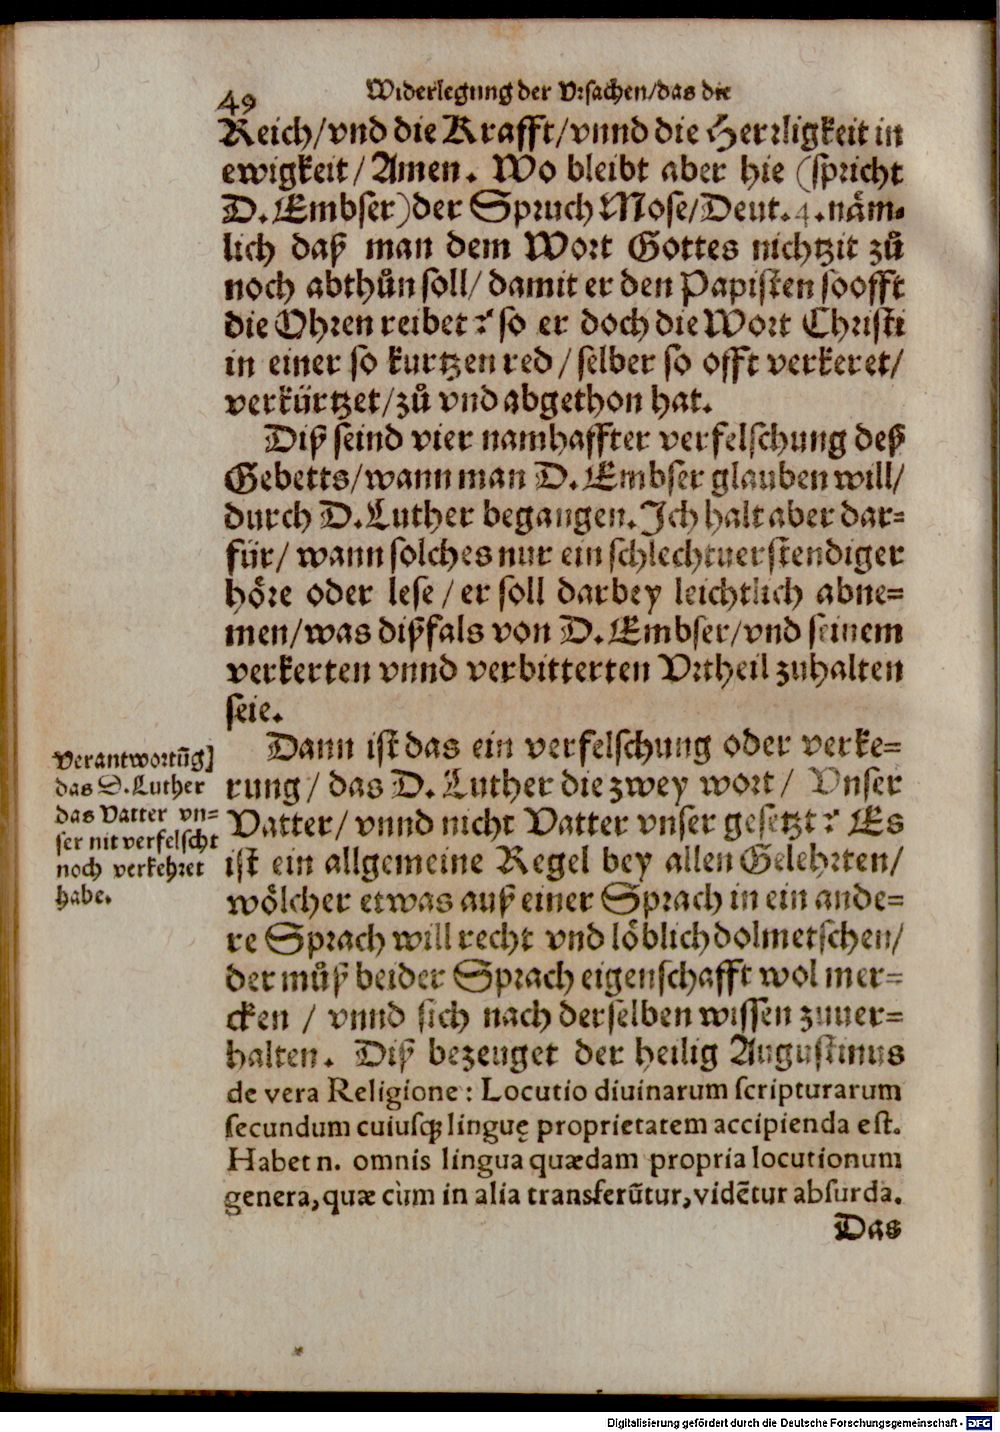 49
Widerlegung der Vrsachen/das die
Reich/vnd die Krafft/vnnd die Herrligkeit in
ewigkeit/ Amen. Wo bleibt aber hie (spricht
D. Embser) der Spruch Mose/Deut. 4. näm-
lich daß man dem Wort Gottes nichtzit zů
noch abthůn soll/ damit er den Papisten soofft
die Ohren reibet? so er doch die Wort Christi
in einer so kurtzen red/ selber so offt verkeret/
verkürtzet/zů vnd abgethon hat.
Diß seind vier namhaffter verfelschung deß
Gebetts/wann man D. Embser glauben will/
durch D. Luther begangen. Ich halt aber dar=
für/ wann solches nur ein schlechtuerstendiger
höre oder lese/ er soll darbey leichtlich abne=
men/was dißfals von D. Embser/vnd seinem
verkerten vnnd verbitterten Vrtheil zuhalten
seie.
Verantwortūg]
das D. Luther
das Vatter vn=
ser nit verfelscht
noch verkehret
habe.
Dann ist das ein verfelschung oder verke=
rung/ das D. Luther die zwey wort/ Vnser
Vatter/ vnnd nicht Vatter vnser gesetzt? Es
ist ein allgemeine Regel bey allen Gelehrten/
wölcher etwas auß einer Sprach in ein ande=
re Sprach will recht vnd löblich dolmetschen/
der můß beider Sprach eigenschafft wol mer=
cken / vnnd sich nach derselben wissen zuuer=
halten. Diß bezeuget der heilig Augustinus
de vera Religione: Locutio diuinarum scripturarum
secundum cuiusq; linguę proprietatem accipienda est.
Habet n. omnis lingua quædam propria locutionum
genera, quæ cùm in alia transferūtur, vidētur absurda.
Das
Digitalisierung gefördert durch die Deutsche Forschungsgemeinschaft - DFG